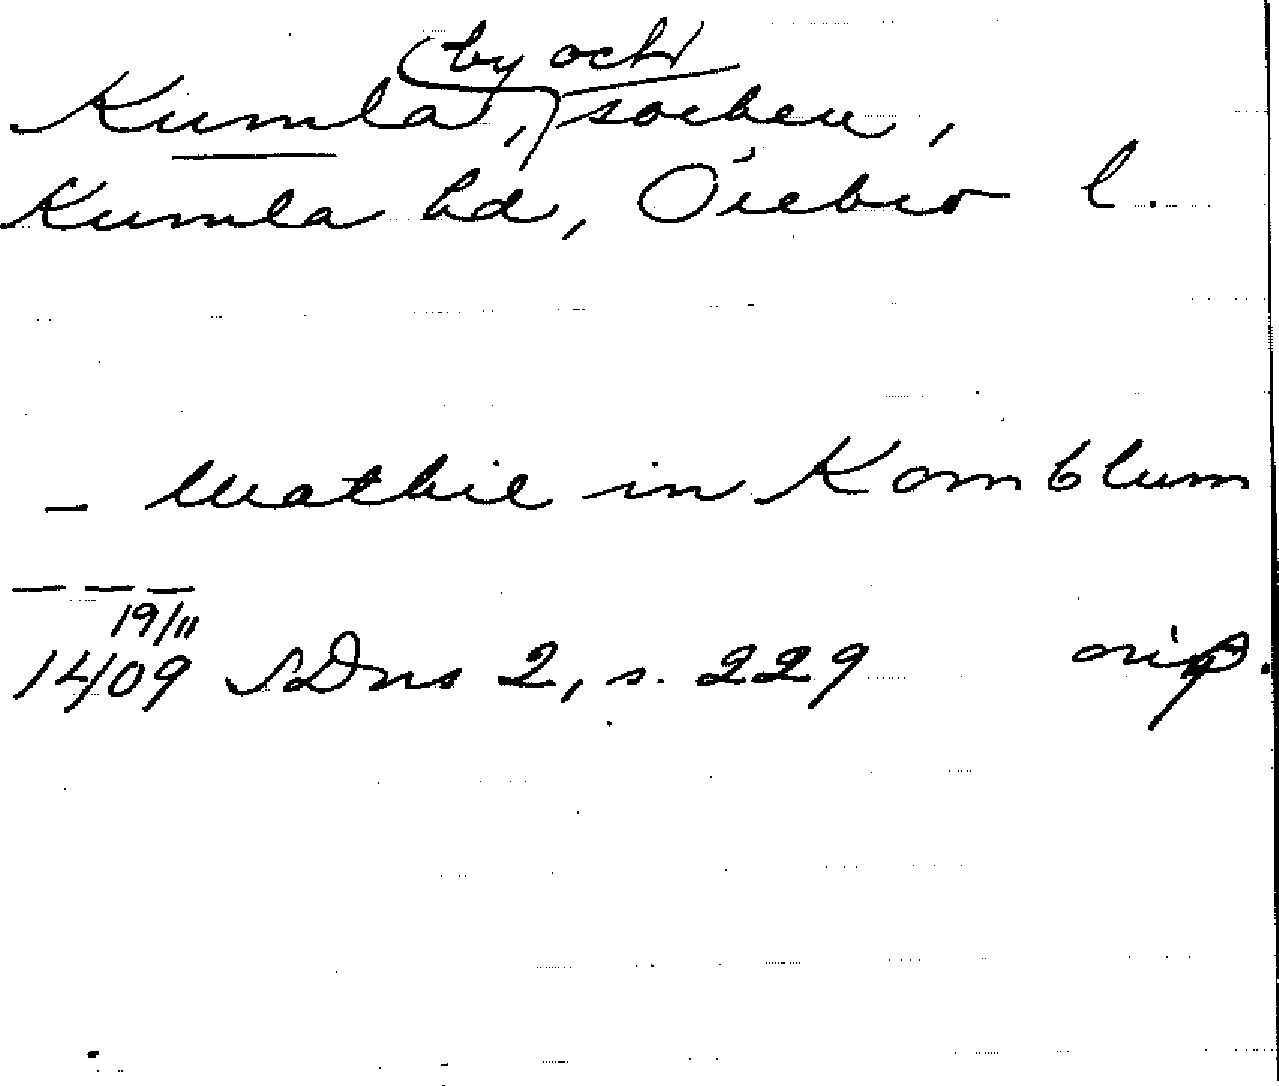 (by och)
Kumla, socken,
Kumla hd, Örebro l.
– Mathie in Komblum
– – –
19/11
1409 SDns 2, s. 229 orig.